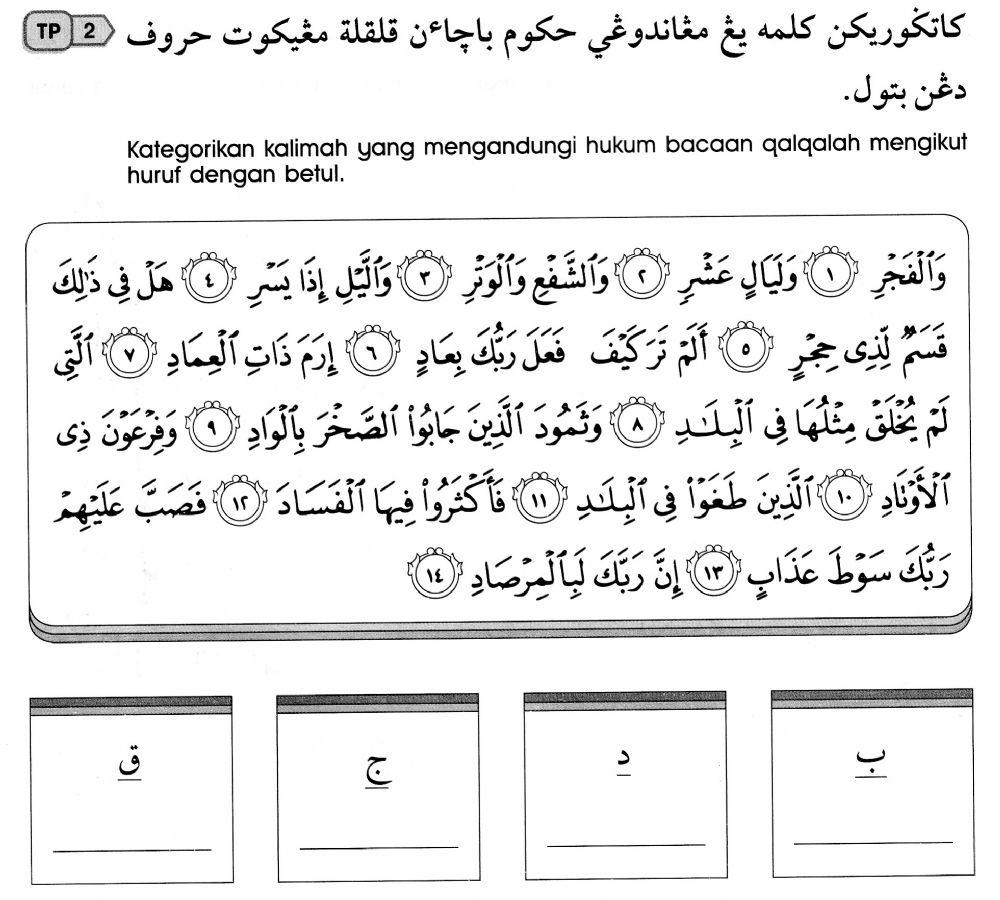 TP 2
كاتݢوريكن كلمه يڠ مڠاندوڠي حكوم باچاءن قلقلة مڠيكوت حروف
دڠن بتول.
Kategorikan kalimah yang mengandungi hukum bacaan qalqalah mengikut
huruf dengan betul.
وَٱلْفَجْرِ ١ وَلَيَالٍ عَشْرٍ ٢ وَٱلشَّفْعِ وَٱلْوَتْرِ ٣ وَٱلَّيْلِ إِذَا يَسْرِ ٤ هَلْ فِى ذَٰلِكَ
قَسَمٌ لِّذِى حِجْرٍ ٥ أَلَمْ تَرَ كَيْفَ فَعَلَ رَبُّكَ بِعَادٍ ٦ إِرَمَ ذَاتِ ٱلْعِمَادِ ٧ ٱلَّتِى
لَمْ يُخْلَقْ مِثْلُهَا فِى ٱلْبِلَـٰدِ ٨ وَثَمُودَ ٱلَّذِينَ جَابُوا۟ ٱلصَّخْرَ بِٱلْوَادِ ٩ وَفِرْعَوْنَ ذِى
ٱلْأَوْتَادِ ١٠ ٱلَّذِينَ طَغَوْا۟ فِى ٱلْبِلَـٰدِ ١١ فَأَكْثَرُوا۟ فِيهَا ٱلْفَسَادَ ١٢ فَصَبَّ عَلَيْهِمْ
رَبُّكَ سَوْطَ عَذَابٍ ١٣ إِنَّ رَبَّكَ لَبِٱلْمِرْصَادِ ١٤
ب د ج ق